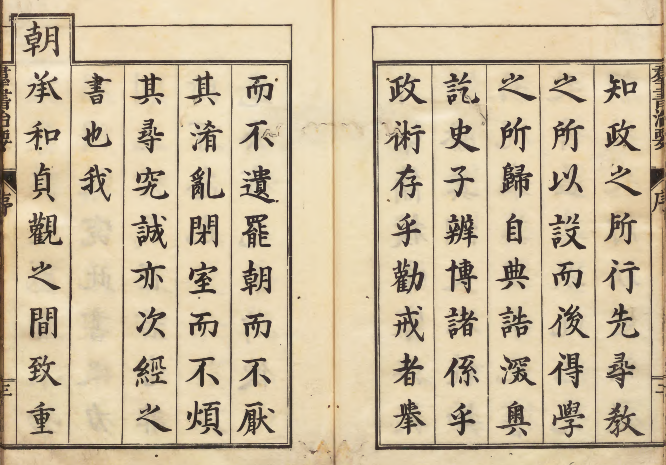 羣書治要 序 二
知政之所行先尋教
之所以設而後得學
之所歸自典誥深奧
訖史子辨博諸係乎
政術存乎勸戒者舉
而不遺罷朝而不厭
其淆亂閉室而不煩
其尋究誠亦次經之
書也我
朝承和貞觀之間致重
羣書治要 序 三